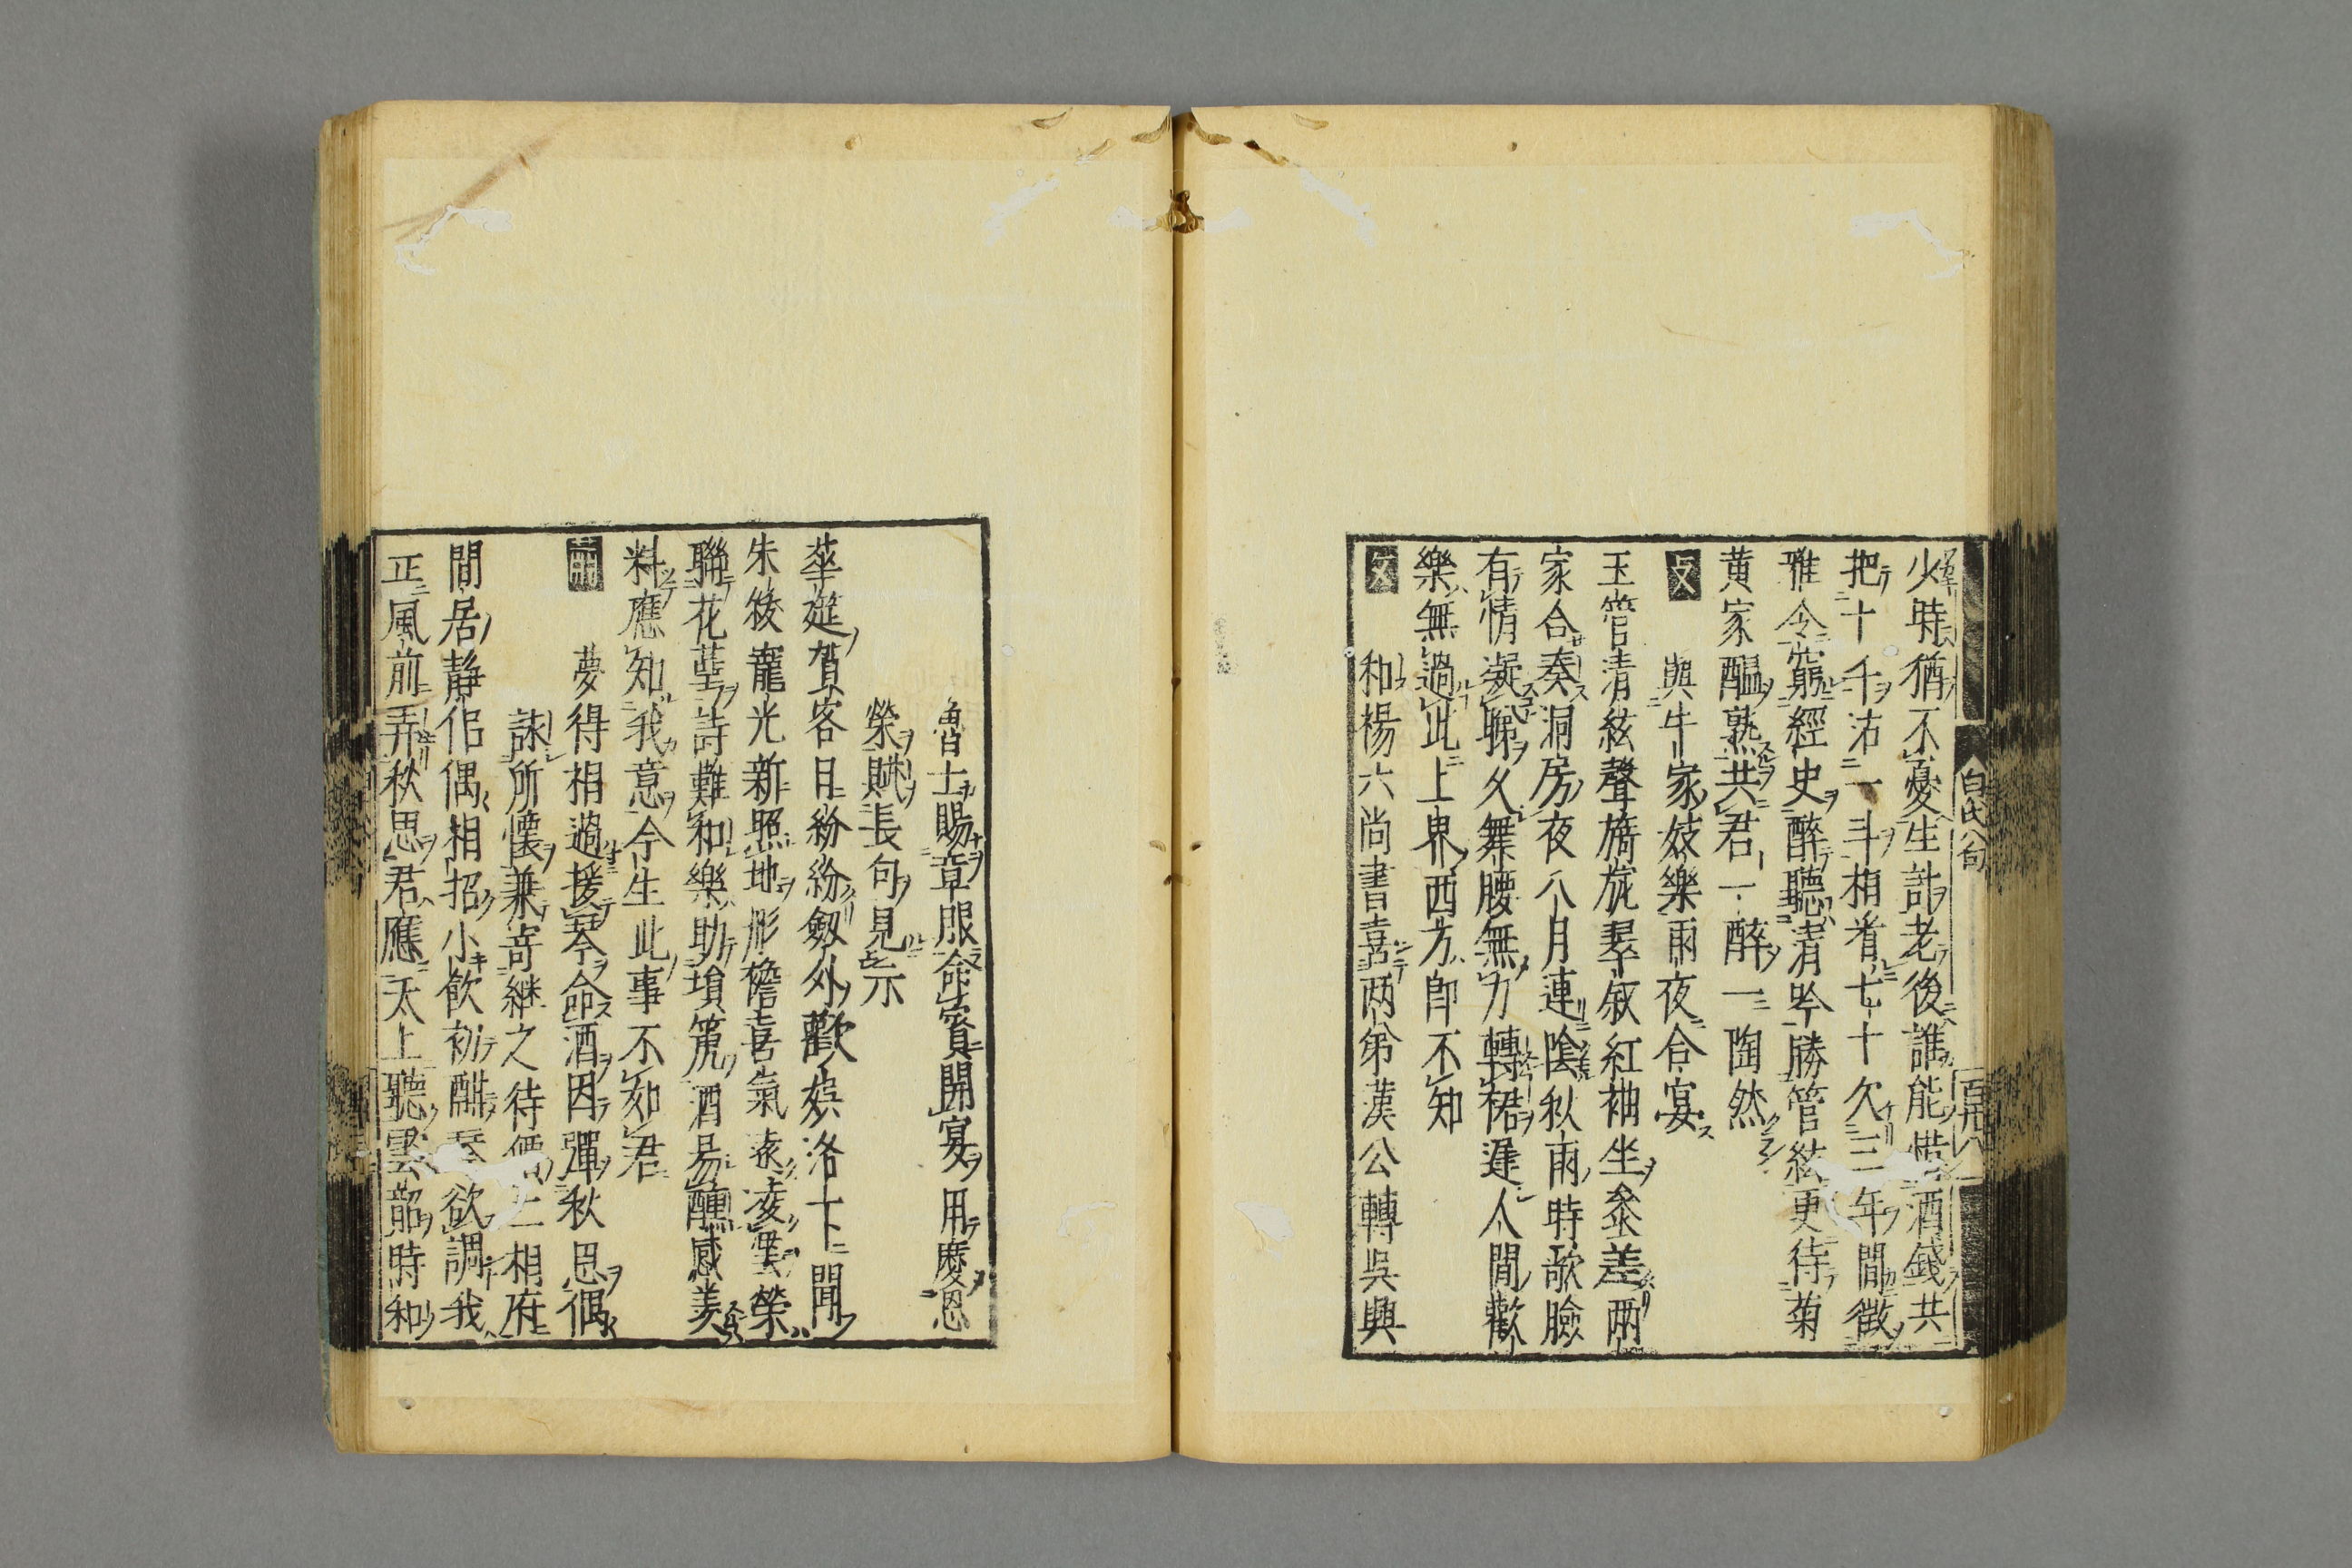 少時猶不憂生計老後誰能惜酒錢共
把十千沽一斗相看七十欠三年閒徵
雅令窮經史醉聽清吟勝管絃更待菊
黃家醞熟共君一醉一陶然
文 與牛家妓樂雨夜合宴
玉管清絃聲旖旎翠釵紅袖坐叅差兩
家合奏洞房夜八月連陰秋雨時歌臉
有情凝睇久舞腰無力轉裙遲人間歡
樂無過此上界西方即不知
文 和楊六尚書喜两弟漢公轉吳興
白氏八句
百九八
魯士賜章服命賓開宴用慶恩
榮賦長句見示
華筵賀客日紛紛劔外歡娯洛下聞
朱紱寵光新照地彤襜喜氣遠凌雲榮
聯花萼詩難和樂助塤篪酒易醺感羡
料應知我意今生此事不如君
蕭 夢得相過援琴命酒因彈秋思偶
詠所懷兼寄継之待價二相府
間居靜侶偶相招小飲初酣琴欲調我
正風前弄秋思君應天上聽雲韶時和